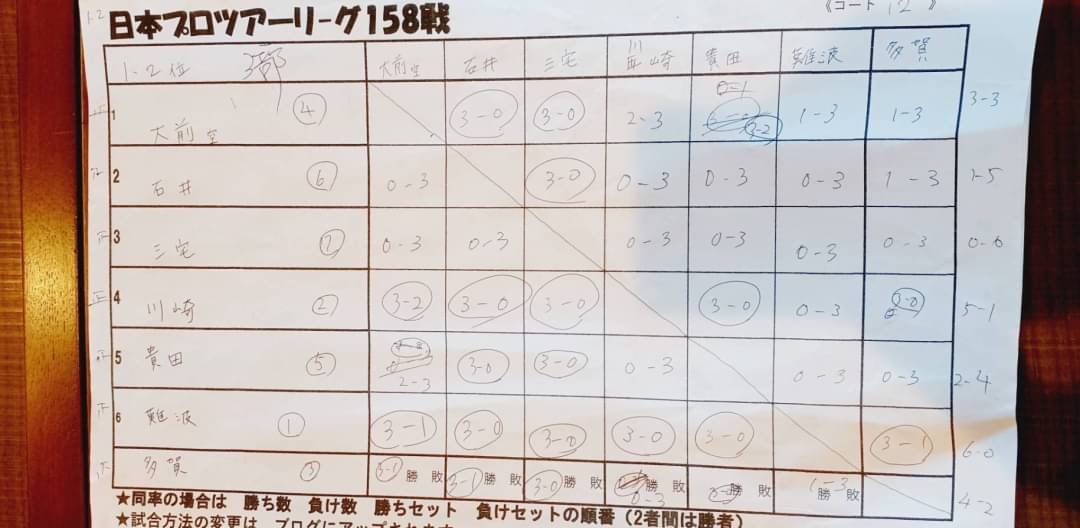 1-2 日本プロツアーリーグ158戦 《コート 12 》
1-2位 3部 大前空 石井 三宅 川崎 貴田 難波 多賀
1 大前空 ④ 3-0 3-0 2-3 3-2 1-3 1-3 3-3
2 石井 ⑥ 0-3 3-0 0-3 0-3 0-3 1-3 1-5
3 三宅 ⑦ 0-3 0-3 0-3 0-3 0-3 0-3 0-6
4 川崎 ② 3-2 3-0 3-0 3-0 0-3 3-0 5-1
5 貴田 ⑤ 2-3 3-0 3-0 0-3 0-3 0-3 2-4
6 難波 ① 3-1 3-0 3-0 3-0 3-0 3-1 6-0
多賀 ③ 3-1 勝 敗 3-1 勝 敗 3-0 勝 敗 0-3 勝 敗 勝 敗 1-3 勝 敗 4-2
★同率の場合は 勝ち数 負け数 勝ちセット 負けセットの順番(2者間は勝者)
★試合方法の変更は ブログにアップされます